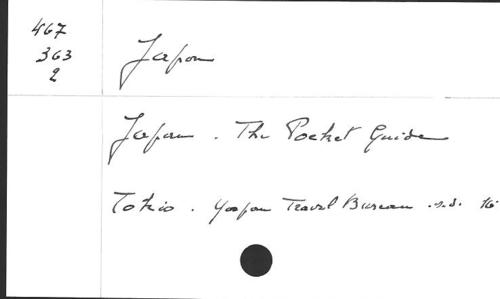 467
363
2
Japon
Japan. The Pocket Guide
Tokio. Japan Travel Bureau. s.d. 16°